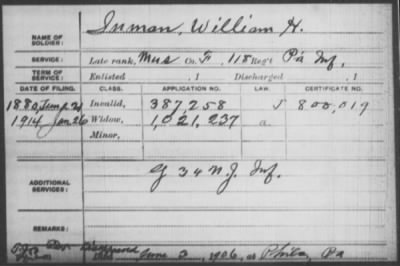 NAME OF SOLDIER: Inman, William H.
SERVICE: Late rank, Mus Co. F, 118 Reg't Pa Inf.
TERM OF SERVICE: Enlisted , 1 Discharged , 1
DATE OF FILING. CLASS. APPLICATION NO. LAW. CERTIFICATE NO.
1880, 21 Invalid, 387,258 J 800,019
1914, Jan 26 Widow, 1,021,237 a.
Minor,
ADDITIONAL SERVICES: G 34 N.J. Inf.
REMARKS:
June 2, 1906, at Phila, Pa